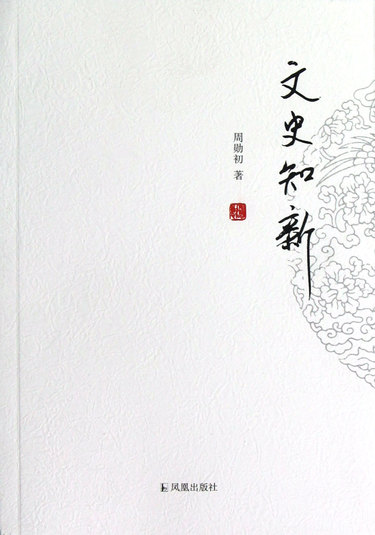 文史知新
周勋初 著
凤凰出版社